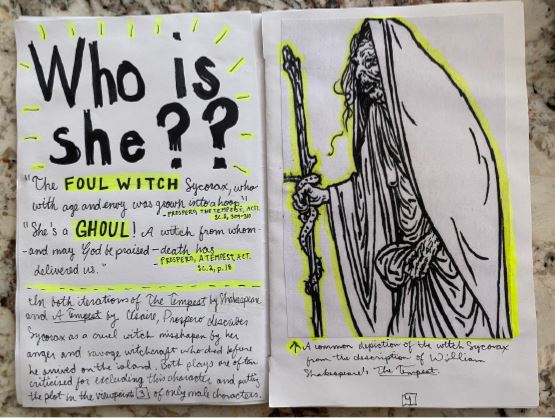 Who is
she??
"The FOUL WITCH Sycorax, who
with age and envy was grown into a hoop."
-PROSPERO, THE TEMPEST, ACT1.
SC.2, 309-310
"She's a GHOUL! A witch from whom-
-and may God be praised-death has
delivered us."
-PROSPERO, A TEMPEST, ACT.
SC.2, p.18
In both iterations of The Tempest by Shakespeare
and A Tempest by Césaire, Prospero describes
Sycorax as a cruel witch misshapen by her
anger and savage witchcraft who died before
he arrived on the island. Both plays are often
criticised for excluding this character and putting
the plot in the viewpoint 3 of only male characters.
↑ A common depiction of the witch Sycorax
from the description of William
Shakespeare's The Tempest.